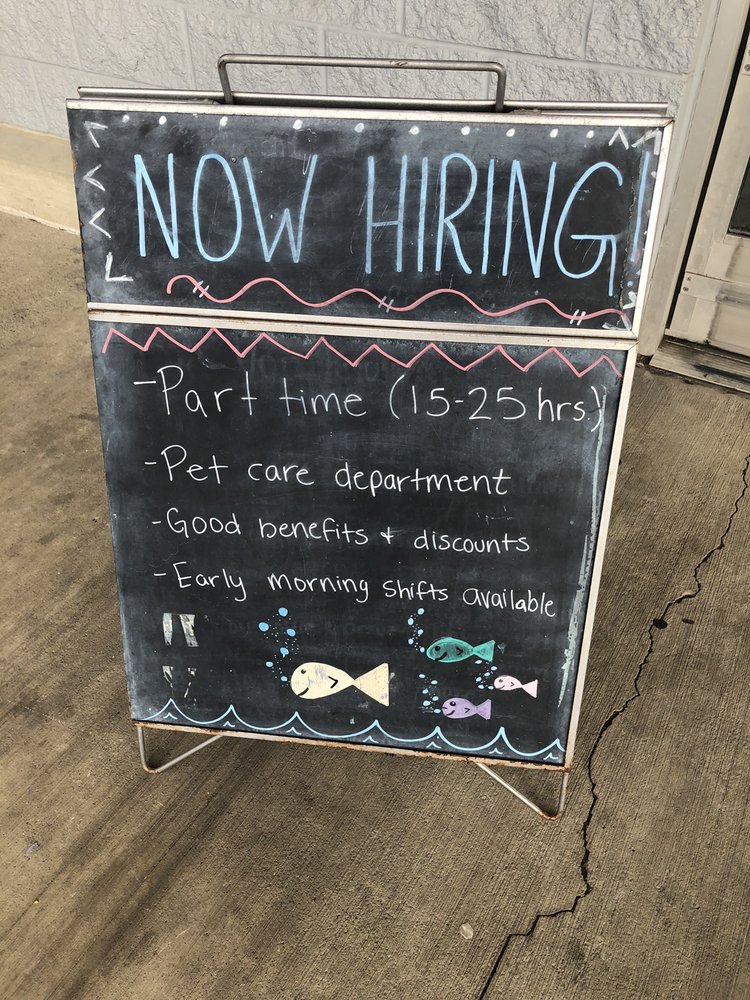 NOW HIRING!
-Part time (15-25 hrs.)
-Pet care department
-Good benefits & discounts
-Early morning shifts available